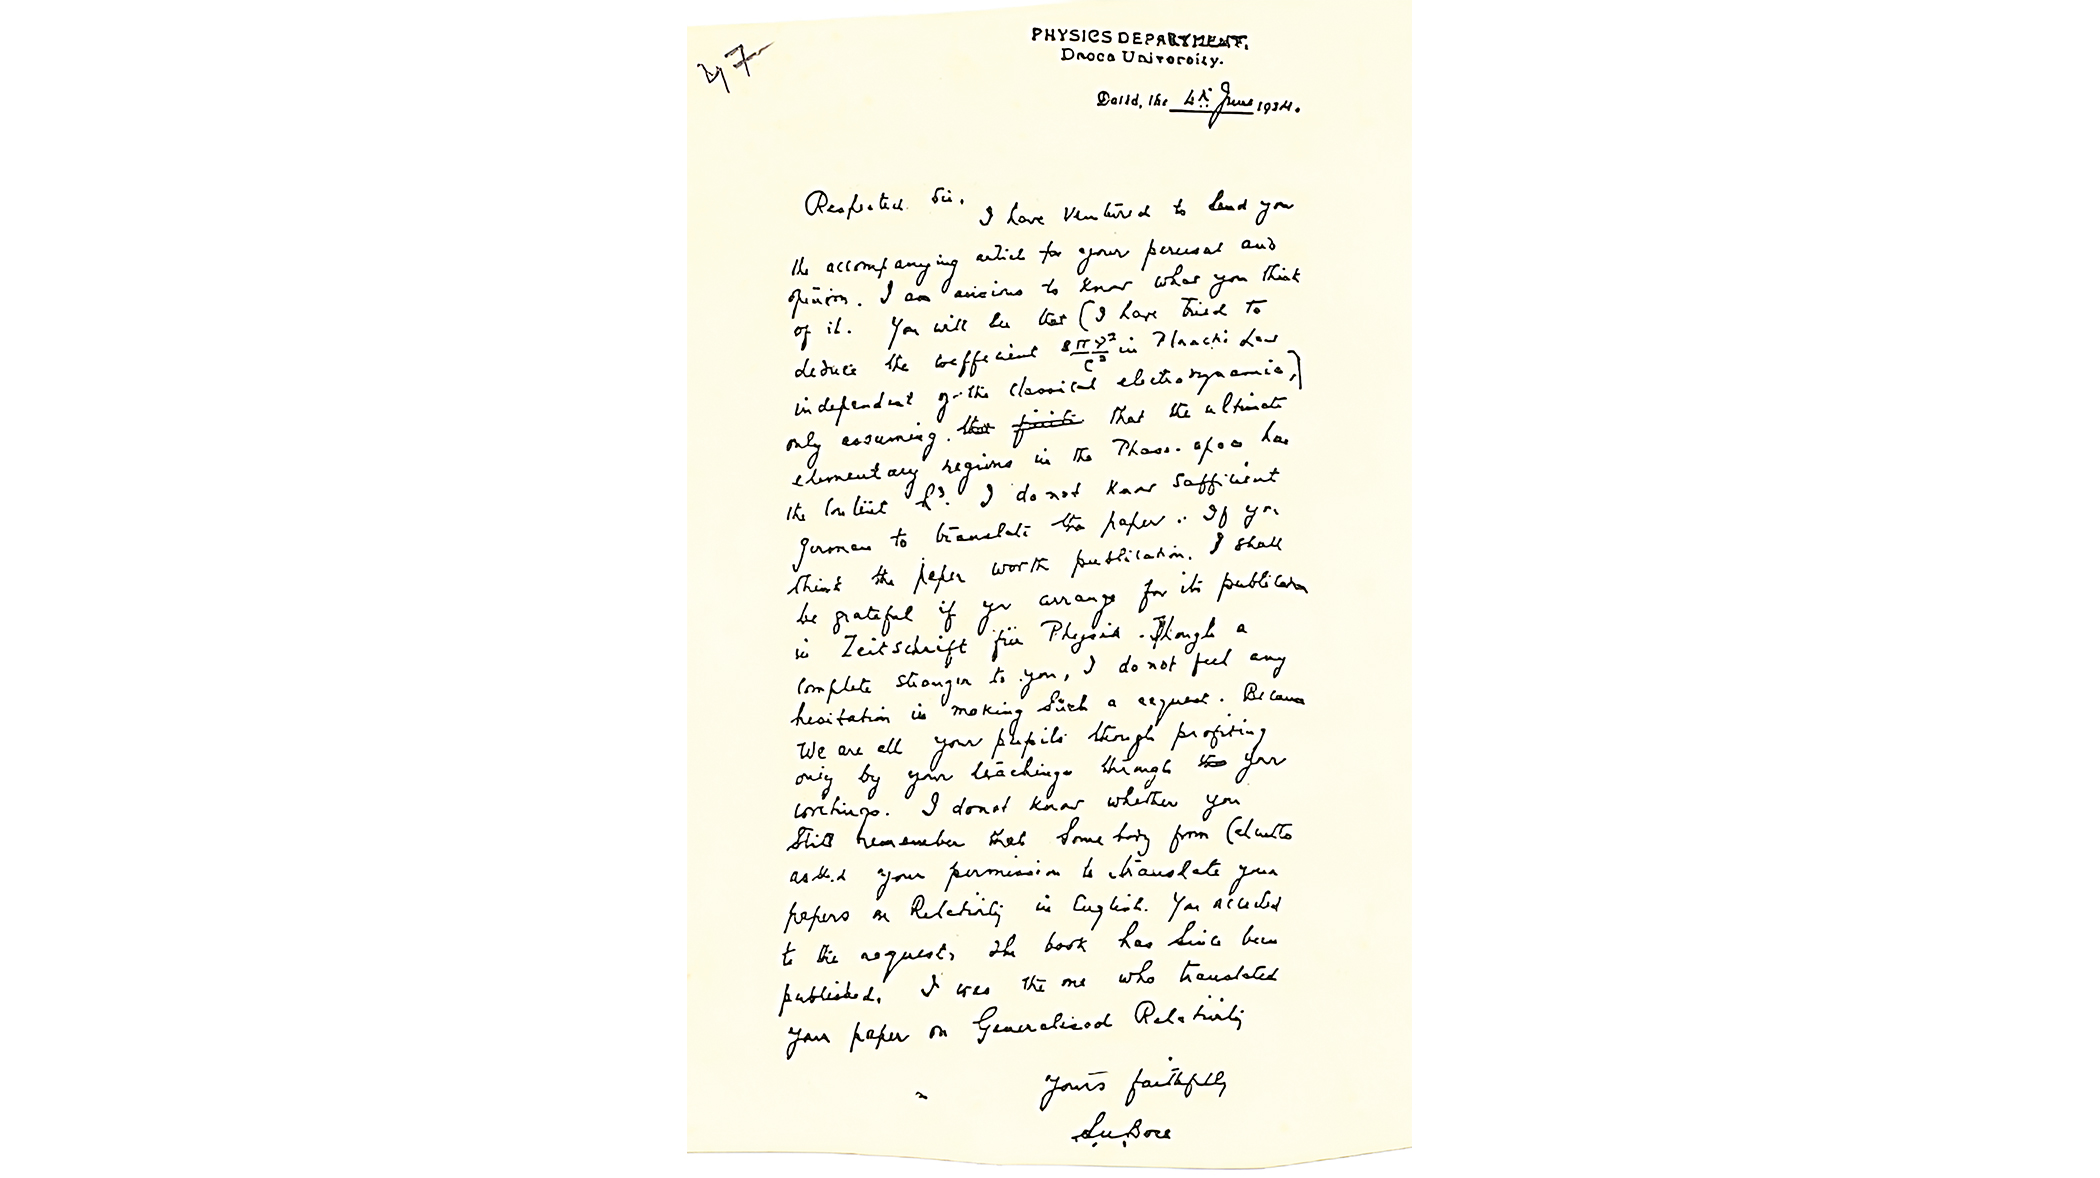 27
PHYSICS DEPARTMENT,
Dacca University.
Dated, the 4th June 1924.
Respected Sir,
I have ventured to send you
the accompanying article for your perusal and
opinion. I am anxious to know what you think
of it. You will see that (I have tried to
deduce the coefficient 8πν²/c³ in Planck's Law
independent of the classical electrodynamics,)
only assuming that the ultimate
elementary regions in the Phase-space has
the content h³. I do not know sufficient
German to translate the paper. If you
think the paper worth publication, I shall
be grateful if you arrange for its publication
in Zeitschrift für Physik. Though a
complete stranger to you, I do not feel any
hesitation in making such a request. Because
We are all your pupils though profiting
only by your teachings through your
writings. I donot know whether you
still remember that somebody from Calcutta
asked your permission to translate your
papers on Relativity in English. You acceded
to the request, The book has since been
published. I was the one who translated
your paper on Generalised Relativity
Yours faithfully
S.N. Bose